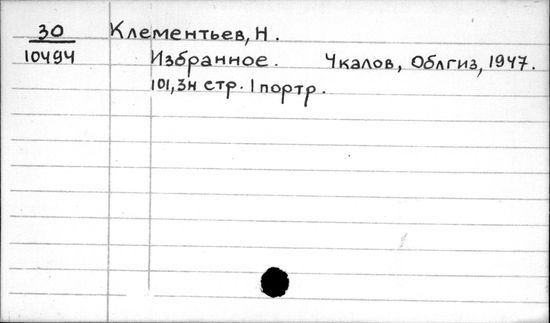 30 Клементьев, Н.
10494 Избранное. Чкалов, Облгиз, 1947.
101, 3н стр. 1 портр.